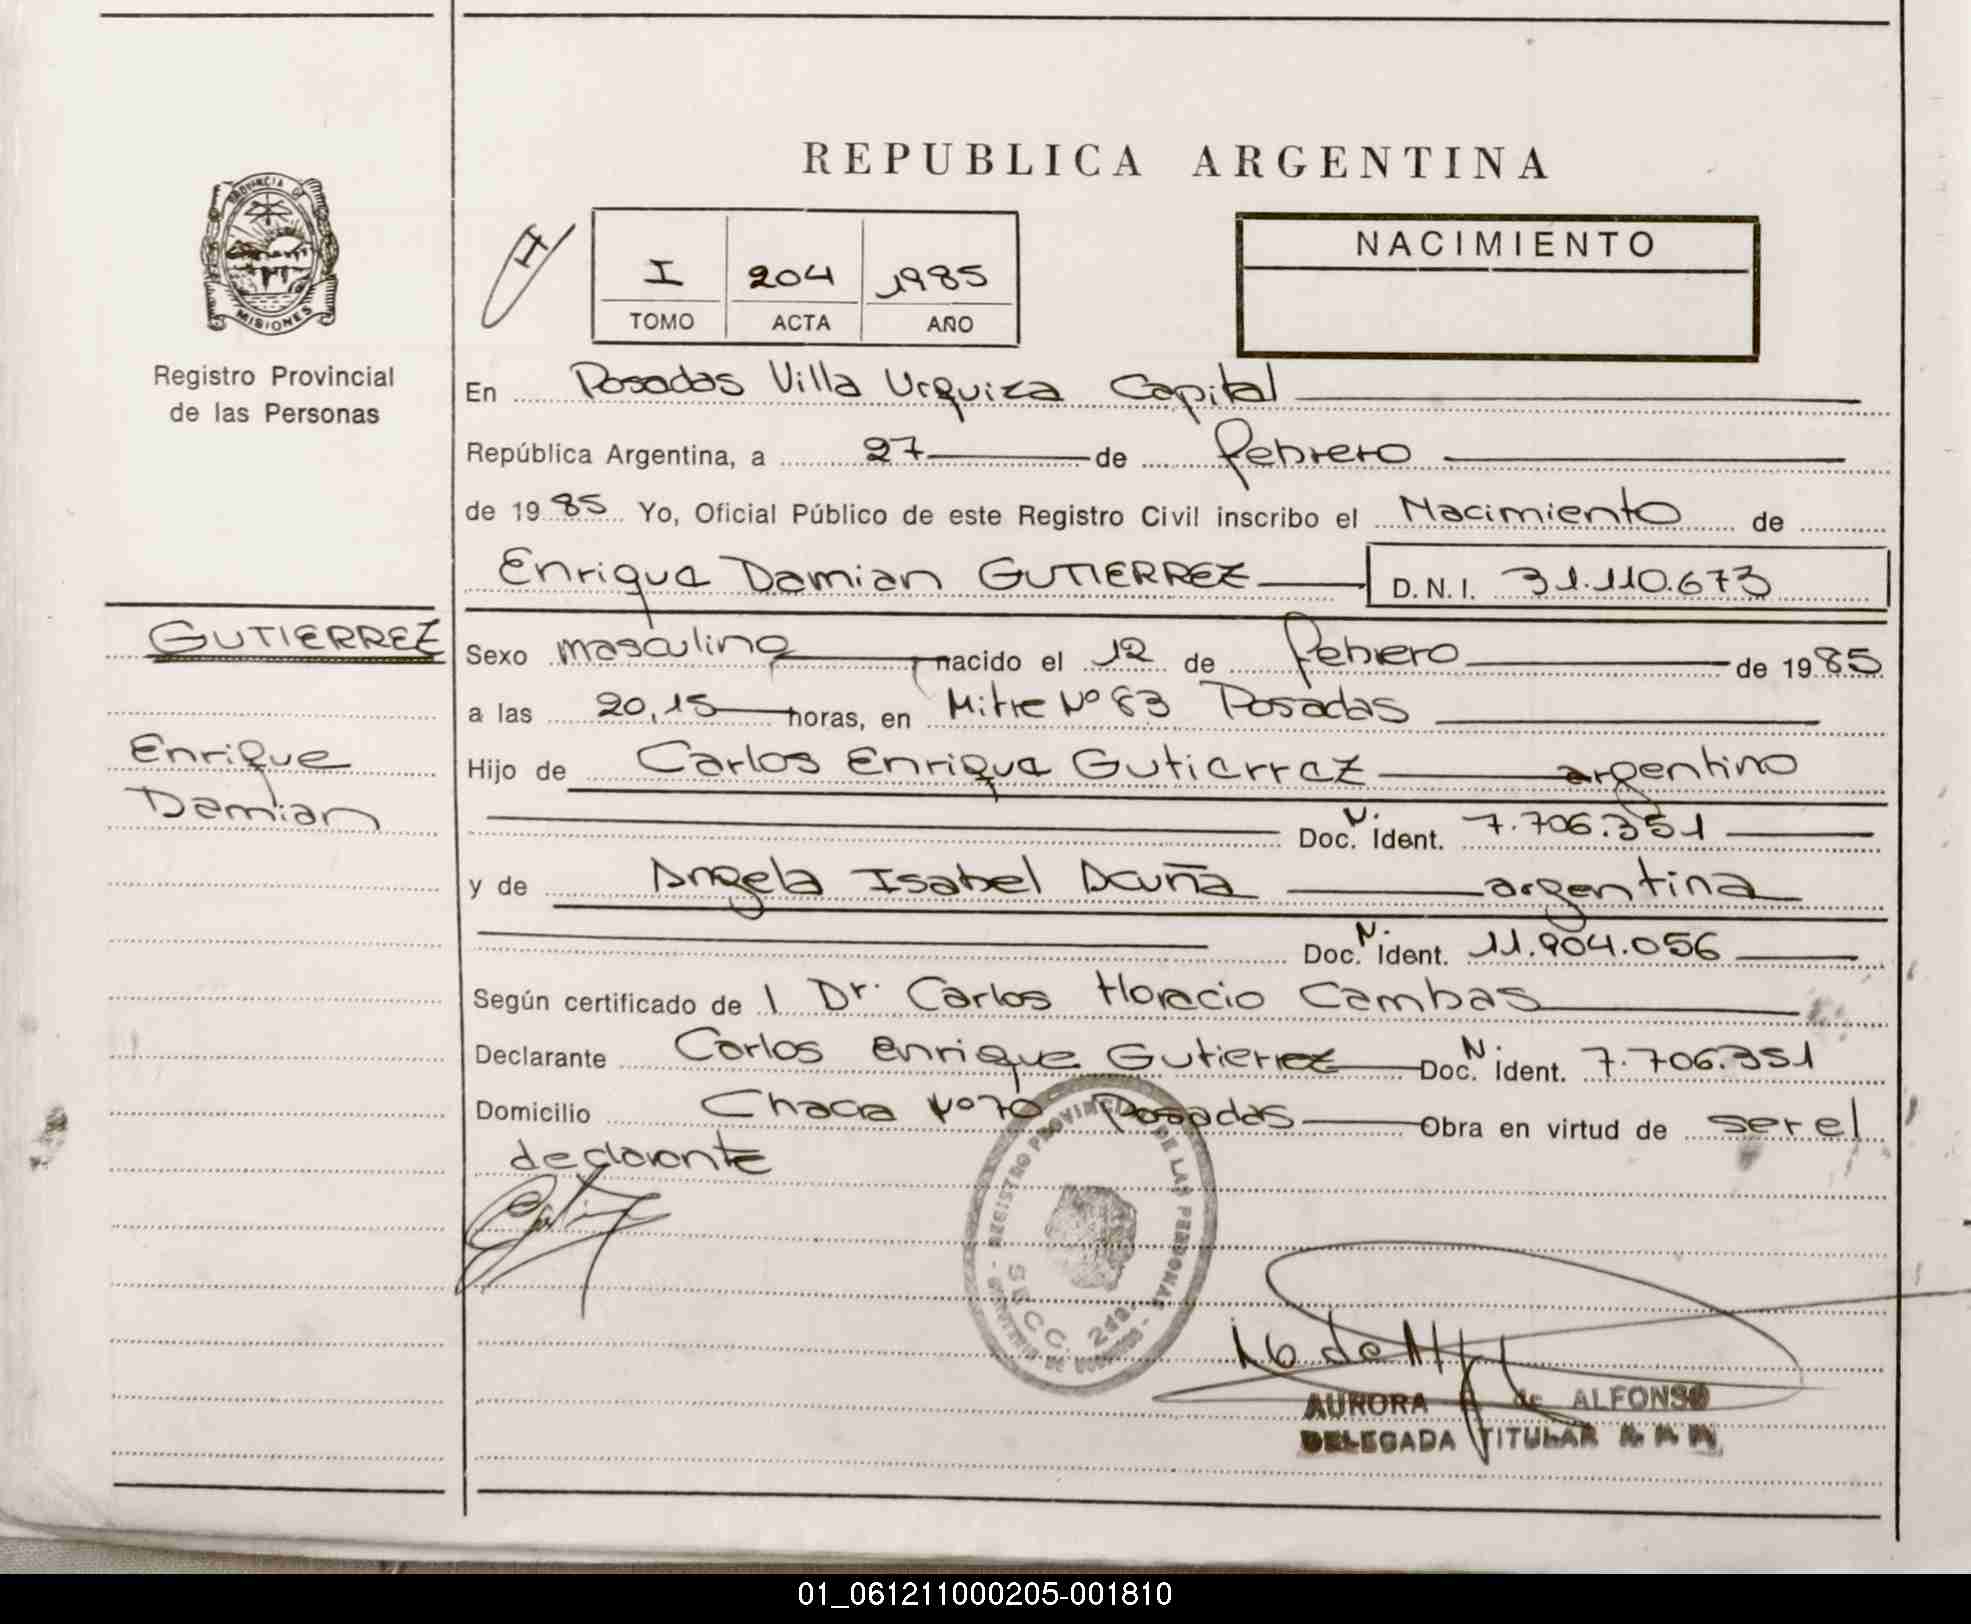 REPUBLICA ARGENTINA
PROVINCIA DE
MISIONES
Registro Provincial
de las Personas
H
I 204 1985
TOMO ACTA AÑO
NACIMIENTO
En Posadas Villa Urquiza Capital
República Argentina, a 27 de febrero
de 1985 Yo, Oficial Público de este Registro Civil inscribo el Nacimiento de
Enrique Damian GUTIERREZ D.N.I. 31.110.673
GUTIERREZ
Enrique
Damian
Sexo masculino nacido el 12 de febrero de 1985
a las 20,15 horas, en Mitre Nº 63 Posadas
Hijo de Carlos Enrique Gutierrez argentino
Doc. N. Ident. 7.706.351
y de Angela Isabel Acuña argentina
Doc. N. Ident. 11.904.056
Según certificado de l Dr. Carlos Horacio Cambas
Declarante Carlos enrique Gutierrez Doc. N. Ident. 7.706.351
Domicilio Chacra Nº 70 Posadas Obra en virtud de ser el
declarante
REGISTRO PROVINCIAL DE LAS PERSONAS
2da.
AURORA de ALFONSO
DELEGADA TITULAR
01_061211000205-001810